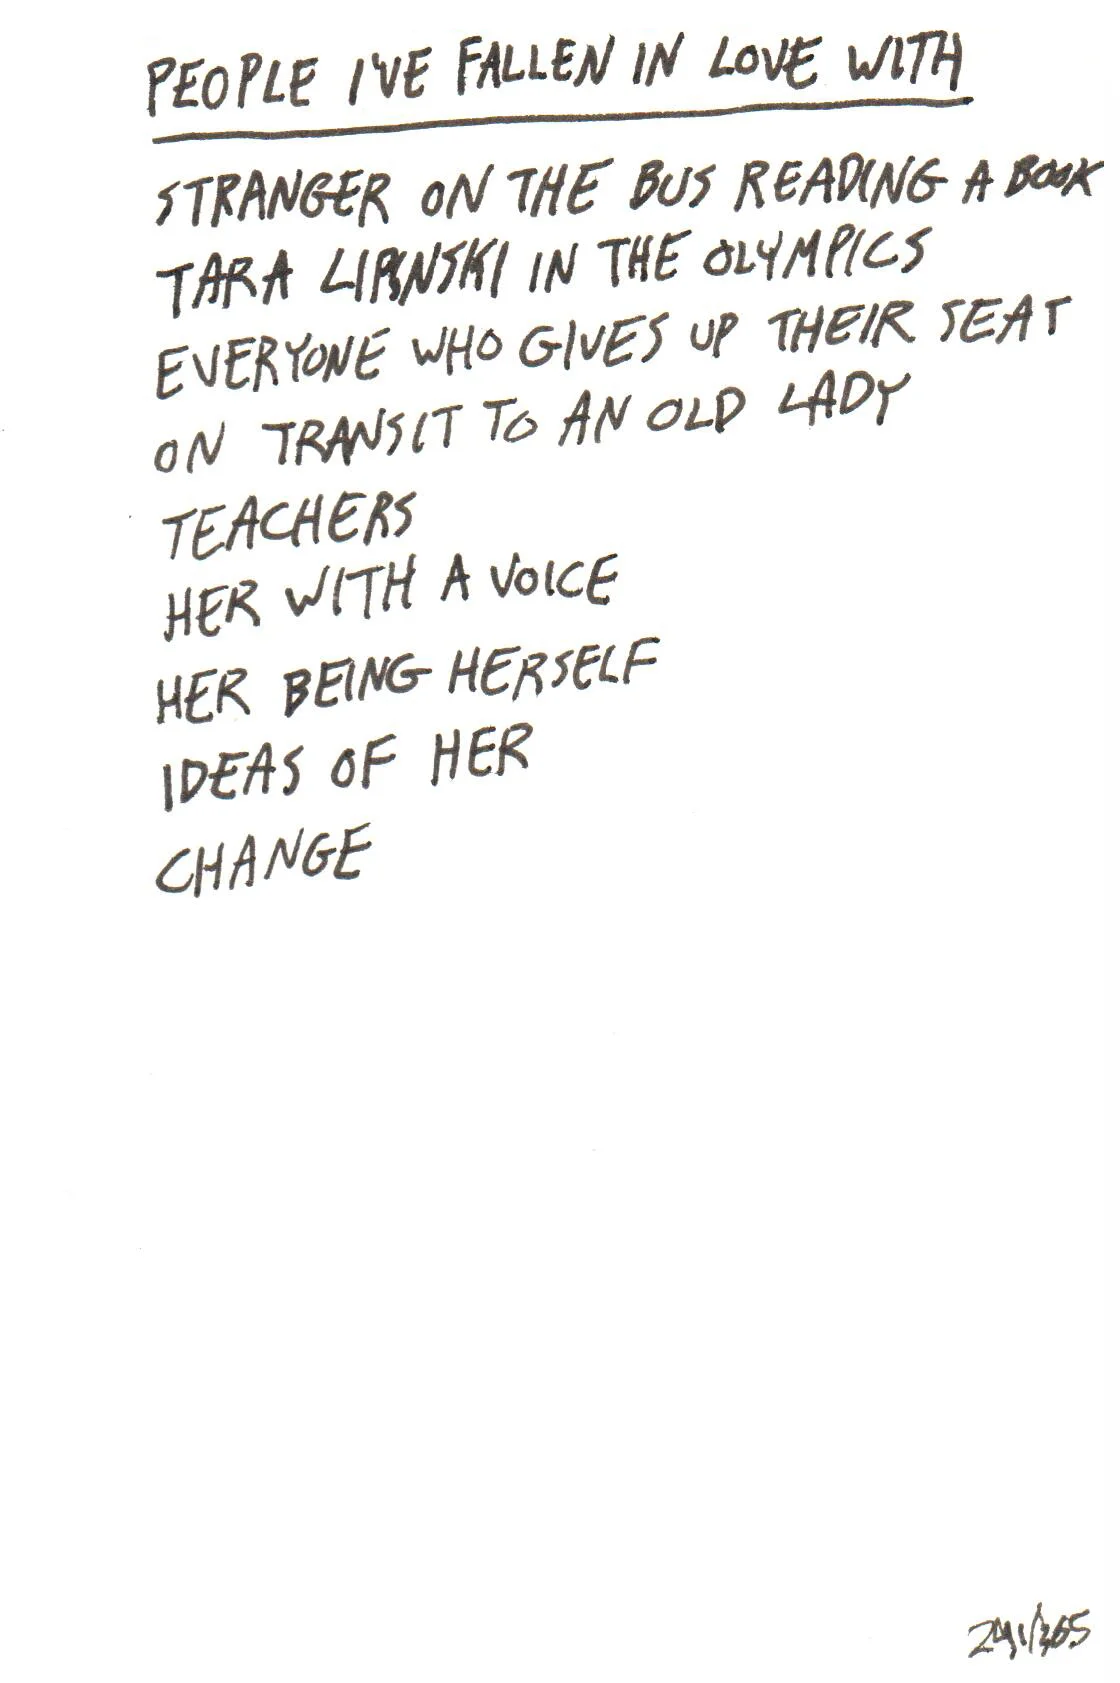 PEOPLE I'VE FALLEN IN LOVE WITH
STRANGER ON THE BUS READING A BOOK
TARA LIPINSKI IN THE OLYMPICS
EVERYONE WHO GIVES UP THEIR SEAT
ON TRANSIT TO AN OLD LADY
TEACHERS
HER WITH A VOICE
HER BEING HERSELF
IDEAS OF HER
CHANGE
291/365